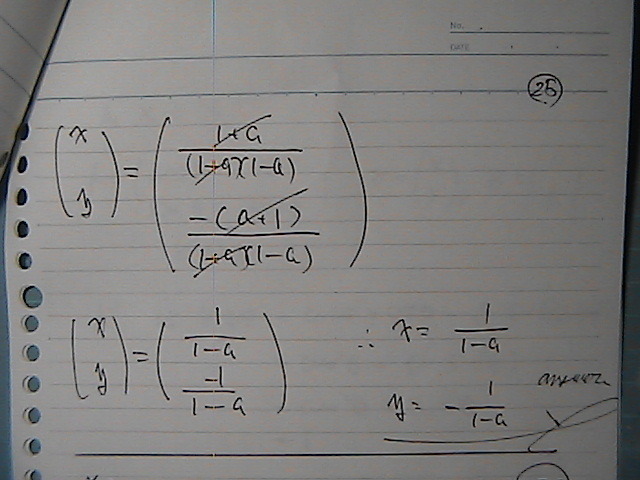 No.
DATE
25
(x y) = ((1+a)/((1+a)(1-a)) -(a+1)/((1+a)(1-a)))
(x y) = (1/(1-a) -1/(1-a))
∴ x = 1/(1-a)
y = -1/(1-a)
answer